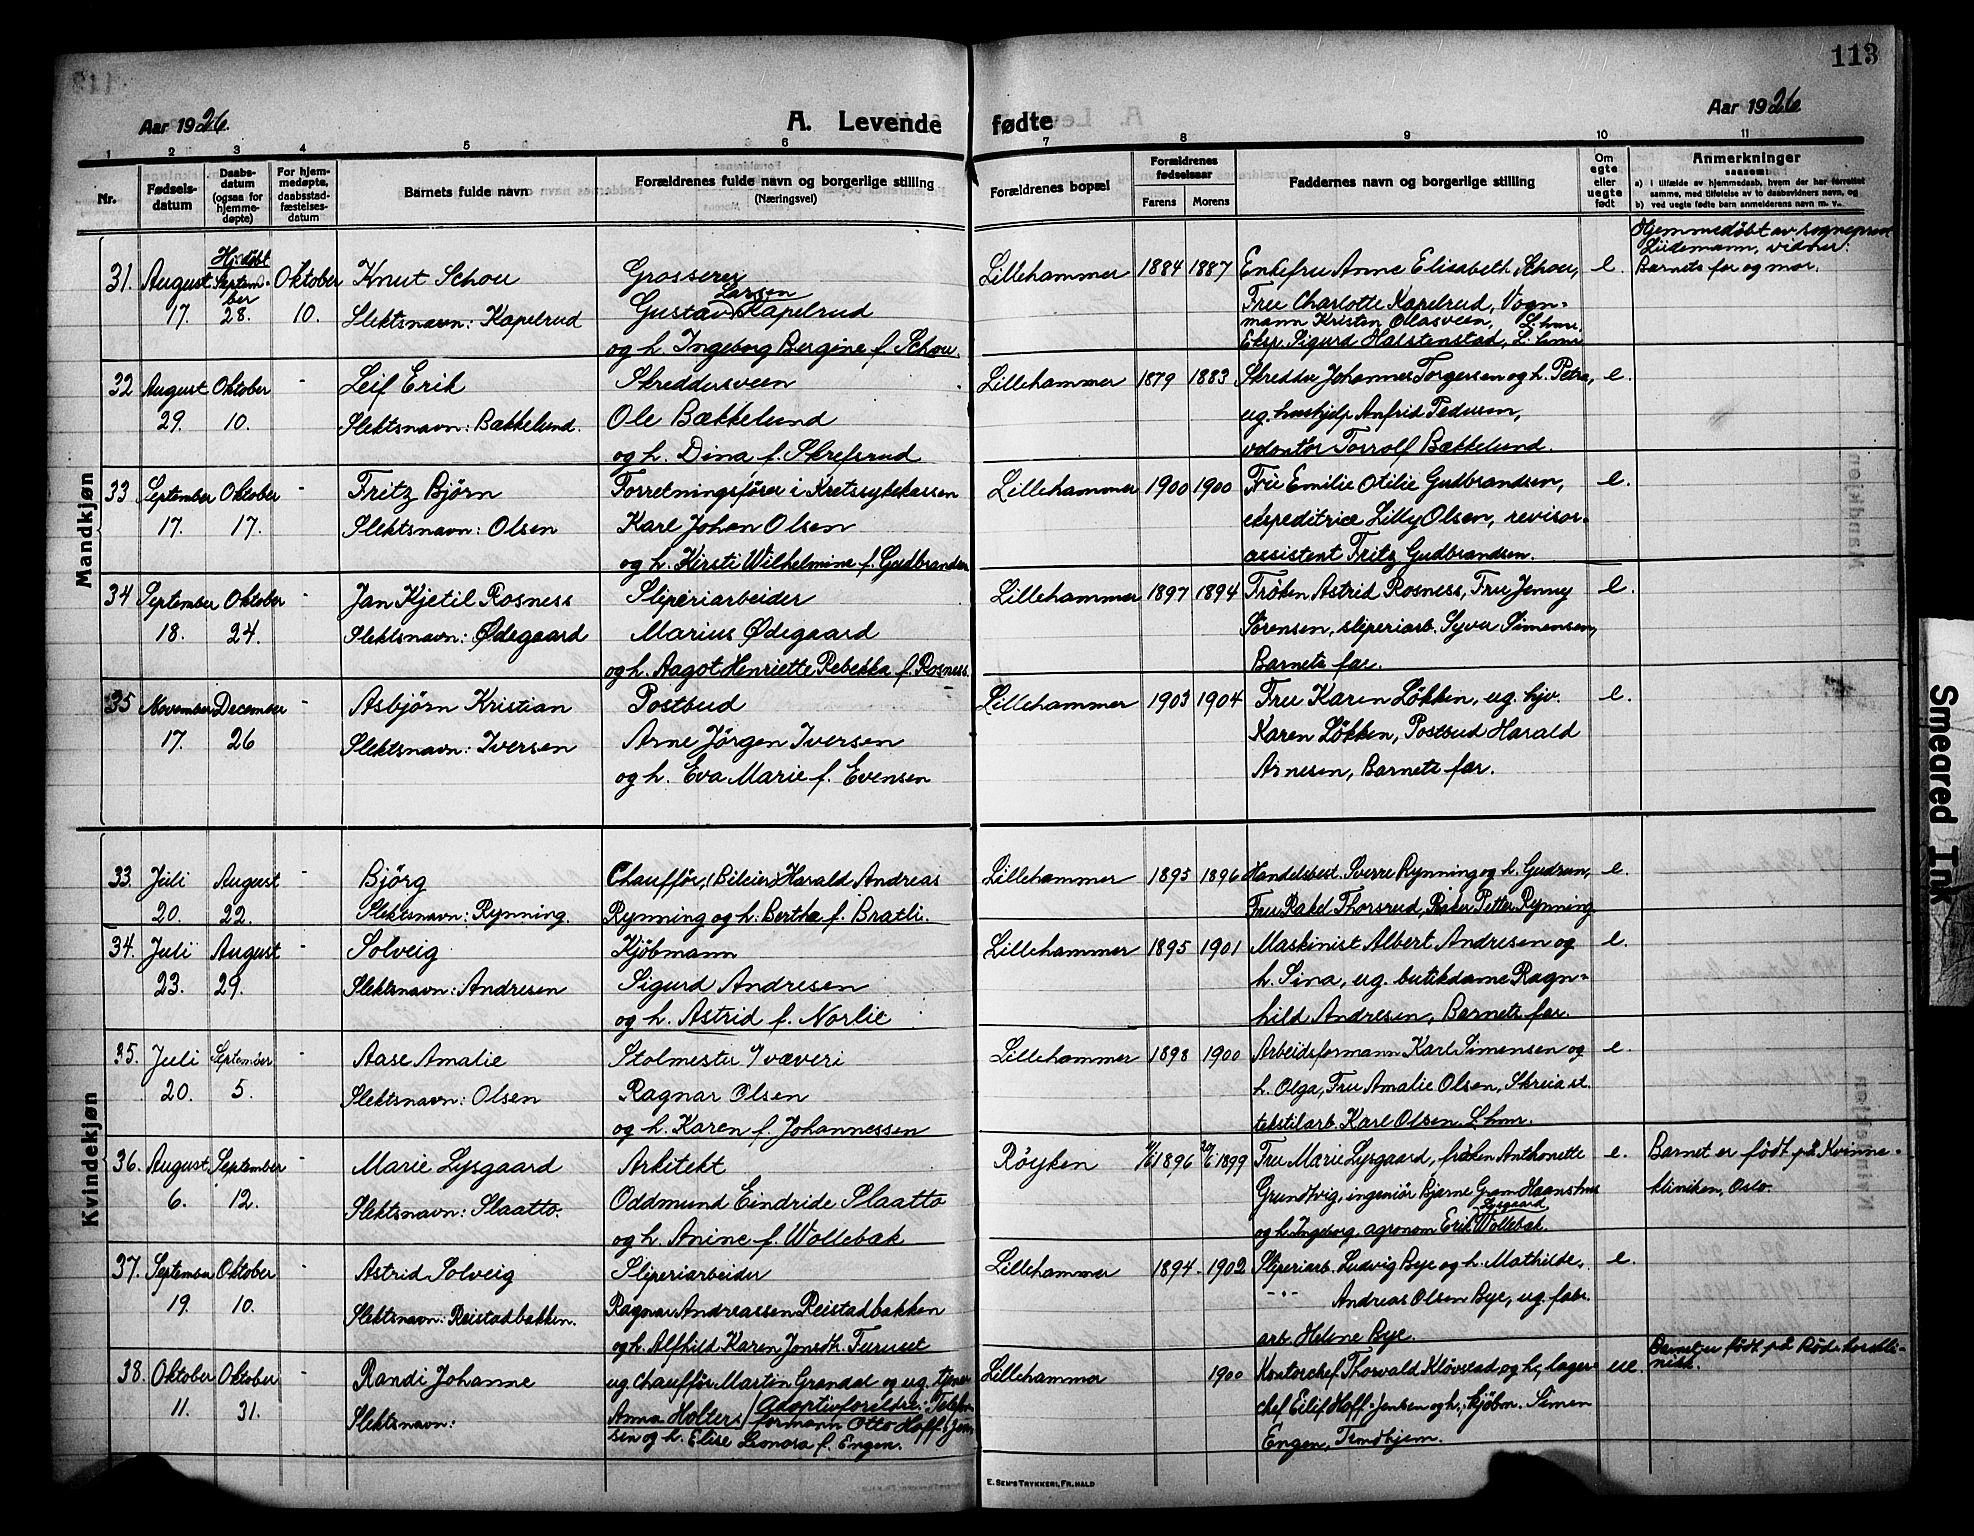 113
Aar 1926.
A. Levende fødte
Aar 1926
1 2 3 4 5 6 7 8 9 10 11
Nr.
Fødsels-
datum
Daabs-
datum
(ogsaa for
hjemme-
døpte)
For hjem-
medøpte,
daabsstad-
fæstelses-
datum
Barnets fulde navn
Forældrenes fulde navn og borgerlige stilling
(Næringsvei)
Forældrenes bopæl
Forældrenes
fødselsaar
Farens Morens
Faddernes navn og borgerlige stilling
Om
egte
eller
uegte
født
Anmerkninger
saasom:
a) i tilfælde av hjemmedaab, hvem der har forrettet
samme, med tilføielse av to daabsvidners navn, og
b) ved uegte fødte barn anmelderens navn m. v.
Mandkjøn
Hjemmedøbt av sogneprest
Lüdemann, vidner:
Barnets far og mor.
31. August Hj.døbt Septem- Oktober Knut Schou Grosserer Lillehammer 1884 1887 Enkefru Anne Elisabeth Schou, e.
ber
17. 28. 10. Slektsnavn: Kapelrud Gustav Larsen Kapelrud Frue Charlotte Kapelrud, Vogn-
mann Kristen Ollasveen, L.hmr.
og h. Ingeborg Bergine f. Schou. Eksp. Sigurd Halstenstad, L.hmr
32 August Oktober - Leif Erik Skreddersveen Lillehammer 1879 1883 Skredder Johannes Torgersen og h. Petra, e.
29. 10. Slektsnavn: Bækkelund. Ole Bækkelund ug. hushjelp Anfrid Pedersen,
og h. Dina f. Skrefsrud volontør Torrolf Bækkelund.
33 September Oktober - Fritz Bjørn Forretningsfører i Kretssykekassen Lillehammer 1900 1900 Frue Emilie Otilie Gudbrandsen, e.
17. 17. Slektsnavn: Olsen Karl Johan Olsen ekspeditrice Lilly Olsen, revisor-
og h. Kirsti Wilhelmine f. Gudbrandsen assistent Fritz Gudbrandsen.
34 September Oktober - Jan Kjetil Rosness Sliperiarbeider Lillehammer 1897 1894 Frøken Astrid Rosness, Frue Jenny e.
18. 24. Slektsnavn: Ødegaard Marius Ødegaard Sørensen, sliperiarb. Syver Simensen,
og h. Aagot Henriette Rebekka f. Rosness. Barnets far.
35 November December - Asbjørn Kristian Postbud Lillehammer 1903 1904 Frue Karen Løkken, ug. hjv. e.
17. 26 Slektsnavn: Iversen Arne Jørgen Iversen Karen Løkken, Postbud Harald
og h. Eva Marie f. Evensen Arnesen, Barnets far.
Kvindekjøn
33. Juli August - Bjørg Chauffør, (Bileier) Harald Andreas Lillehammer 1895 1896 Handelsbest. Sverre Rynning og h. Gudrun, e.
20. 22. Slektsnavn: Rynning. Rynning og h. Berthe f. Bratli. Frue Rakel Thorsrud, Petter Rynning
34. Juli August - Solveig Kjøbmann Lillehammer 1895 1901 Maskinist Albert Andresen og e.
23. 29. Slektsnavn: Andresen Sigurd Andresen h. Sina, ug. butikdame Ragn-
og h. Astrid f. Norlie hild Andresen, Barnets far.
35. Juli September - Aase Amalie Stolmester v/ væveri Lillehammer 1898 1900 Arbeidsformann Karl Simensen og e.
20. 5. Slektsnavn: Olsen Ragnar Olsen h. Olga, Frue Amalie Olsen, Skreia st.
og h. Karen f. Johannessen tekstilarb. Karl Olsen L.hmr.
36. August September - Marie Lysgaard Arkitekt Røyken 1896 1899 Frue Marie Lysgaard, frøken Anthonette e. Barnet er født på Kvinne-
6. 12. Slektsnavn: Slaatto. Oddmund Eindride Slaatto Grundtvig, ingeniør Bjarne Gram Haanshus klinikken, Oslo.
og h. Anine f. Wollebæk og h. Ingeborg, agronom Erik Lysgaard Wollebæk
37. September Oktober - Astrid Solveig Sliperiarbeider Lillehammer 1894 1902 Sliperiarb. Ludvig Bye og h. Mathilde, e.
19. 10. Slektsnavn: Reistadbakken. Ragnar Andreassen Reistadbakken -"- Andreas Olsen Bye, ug. fabr.
og h. Alfhild Karen Jonsdt. Furuset arb. Helene Bye.
38. Oktober Oktober - Randi Johanne ug. chauffør Martin Grandal og ug. tjener Lillehammer 1900 Kontorchef Thorvald Kløvstad og h., lager- ue. Barnet er født på Røde kors kli-
nikk.
11. 31. Slektsnavn: Anna Holters / Adoptivforeldre: Telefon- chef Eilif Hoff-Jensen og h., kjøbm. Simen
formann Otto Hoff-Jen-
sen og h. Elise Leonora f. Engen. Engen, Trondhjem.
E. SEM'S TRYKKERI, FR.HALD
Smeared Ink